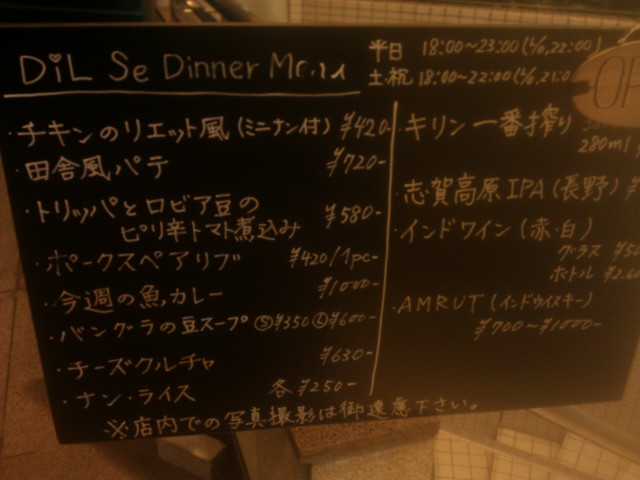 DiL Se Dinner Menu
平日 18:00~23:00(L/o,22:00)
土.祝 18:00~22:00(L/o,21:0
OP
・チキンのリエット風(ミニナン付) ¥420-
・田舎風パテ ¥720-
・トリッパとロビア豆の
ピリ辛トマト煮込み ¥580-
・ポークスペアリブ ¥420/1pc-
・今週の魚カレー ¥1000-
・バングラの豆スープ Ⓢ¥350 Ⓛ¥600-
・チーズクルチャ ¥630-
・ナン・ライス 各¥250-
・キリン一番搾り
280ml
・志賀高原IPA(長野) ¥
・インドワイン(赤・白)
グラス ¥50
ボトル ¥2.60
・AMRUT(インドウイスキー)
¥700~¥1000-
※店内での写真撮影は御遠慮下さい。